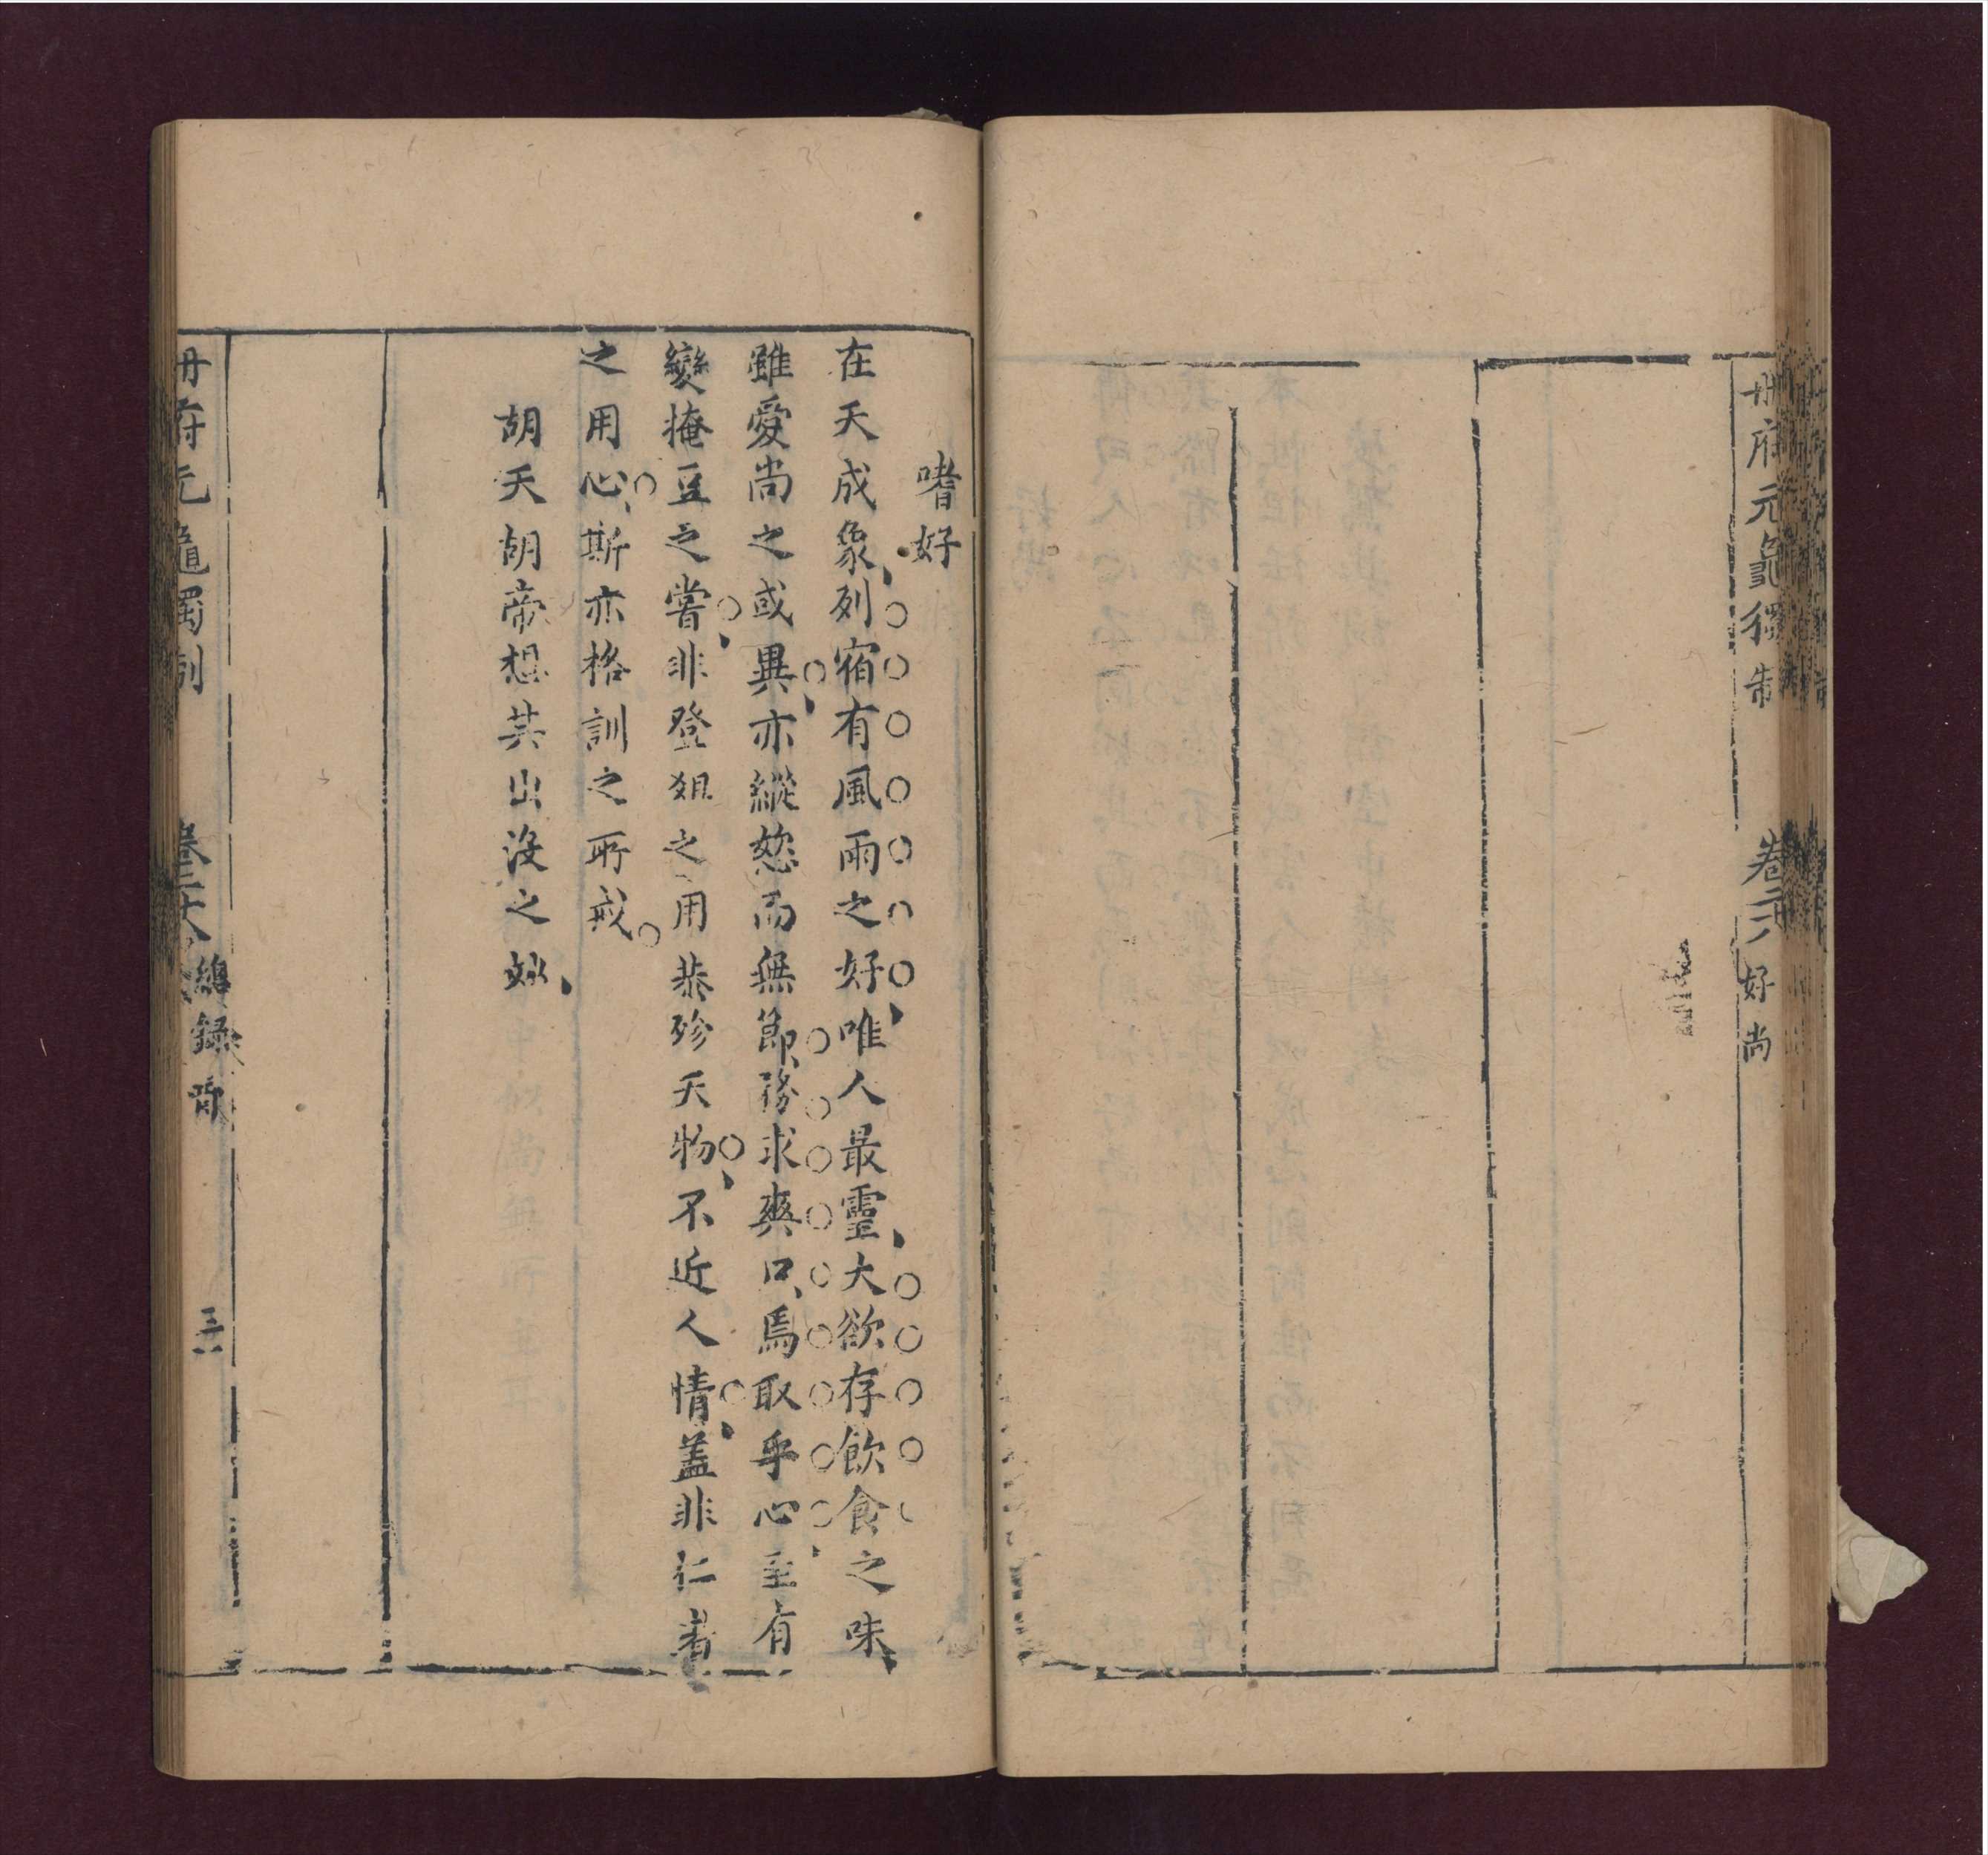 册府元龜獨制 卷二十八 好尚
嗜好
在天成象列宿有風雨之好唯人最靈大欲存飲食之味
雖愛尚之或異亦縱慾而無節務求爽口焉取乎心至有
變掩豆之嘗非登俎之用恭殄天物不近人情蓋非仁者
之用心斯亦格訓之所戒
胡天胡帝想其出沒之妙
册府元龜獨制 卷二十八 總錄部